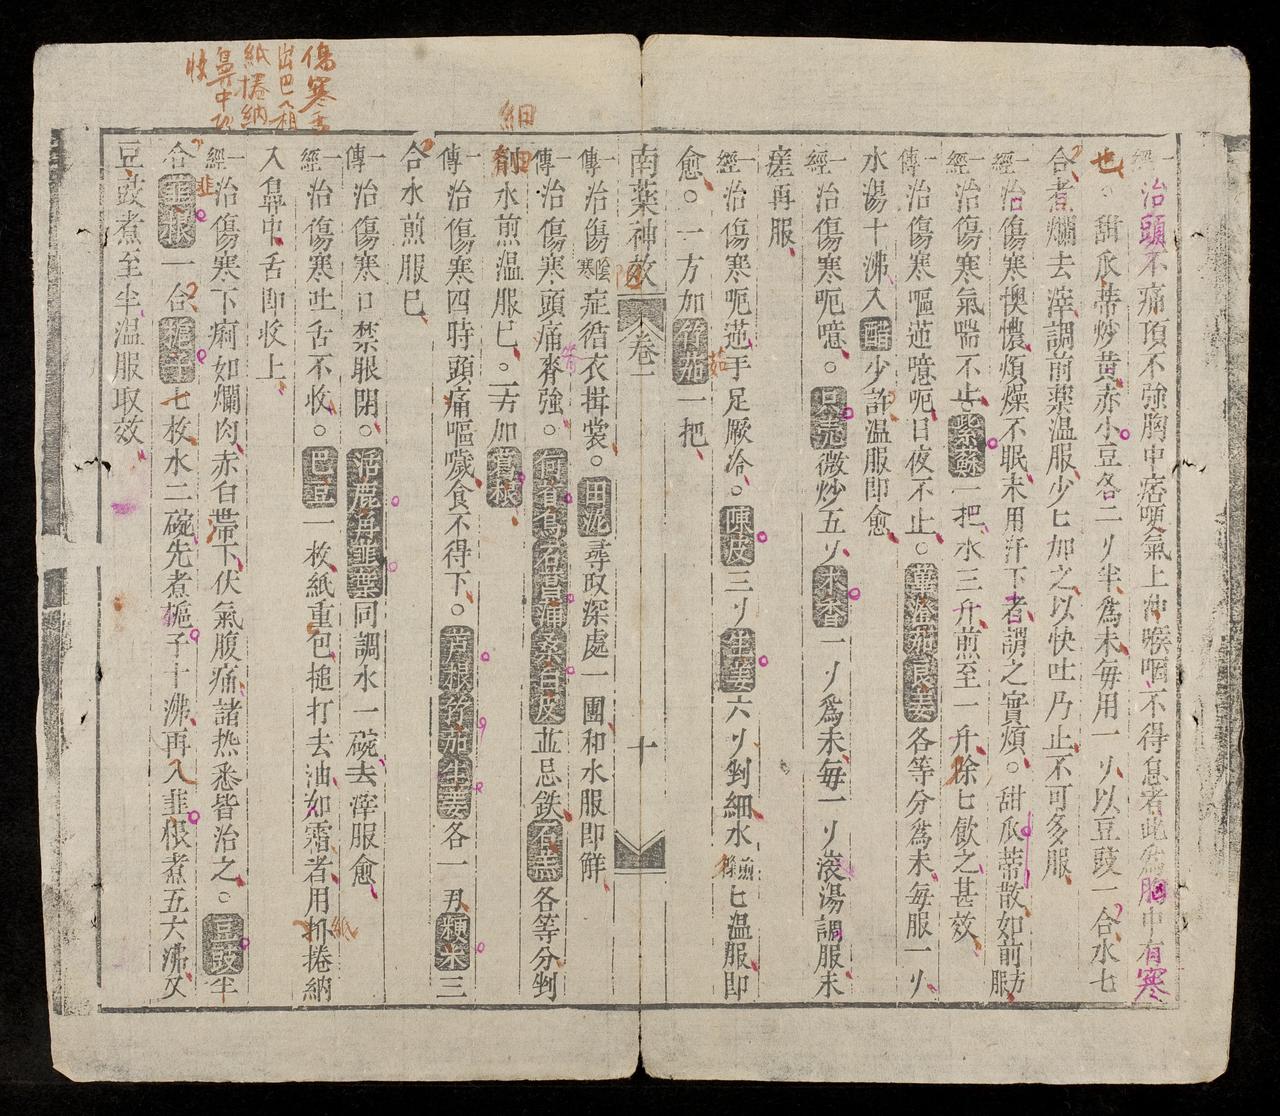 一經治頭不痛頂不強胸中痞哽氣上冲喉咽不得息者此為胸中有寒
也。甜瓜蒂炒黄赤小豆各二刂半為末每用一刂以豆豉一合水七
合煮爛去滓調前薬温服少匕加之以快吐乃止不可多服
一經治傷寒懊憹煩燥不眠未用汗下者謂之實煩。甜瓜蒂散如前方服
一經治傷寒氣喘不止。紫蘇一把水三升煎至一升除匕飲之甚效
一傳治傷寒嘔逆噫呃日夜不止。蓽澄茄良姜各等分為末每服一刂
水湯十沸入醋少許温服即愈
一經治傷寒呃噫。只壳微炒五刂木香一刂為末每一刂滚湯調服未
瘥再服
一經治傷寒呃逆手足厥冷。陳皮三刂生姜六刂剉細水煎徐匕温服即
愈。一方加竹茹一把
南薬神效 卷二 十
一傳治傷寒陰症循衣揖裳。田泥尋取深處一團和水服即解
一傳治傷寒頭痛脊強。何首烏石菖蒲桑白皮並忌鉄石羔各等分剉
細水煎温服已。一方加葛根
一傳治傷寒四時頭痛嘔噦食不得下。芦根竹茹生姜各一刃粳米三
合水煎服已
一傳治傷寒口禁眼閉。活鹿角韮葉同調水一碗去滓服愈
一經治傷寒吐舌不收。巴豆一枚紙重包搥打去油如霜者用紙捲納
入鼻中舌即收上
一經治傷寒下痢如爛肉赤白帶下伏氣腹痛諸热悉皆治之。豆豉半
合韮根一合梔子七枚水二碗先煮梔子十沸再入韮根煮五六沸又
豆豉煮至半温服取效
細
傷寒舌
出巴豆霜
紙捲納
鼻中
收